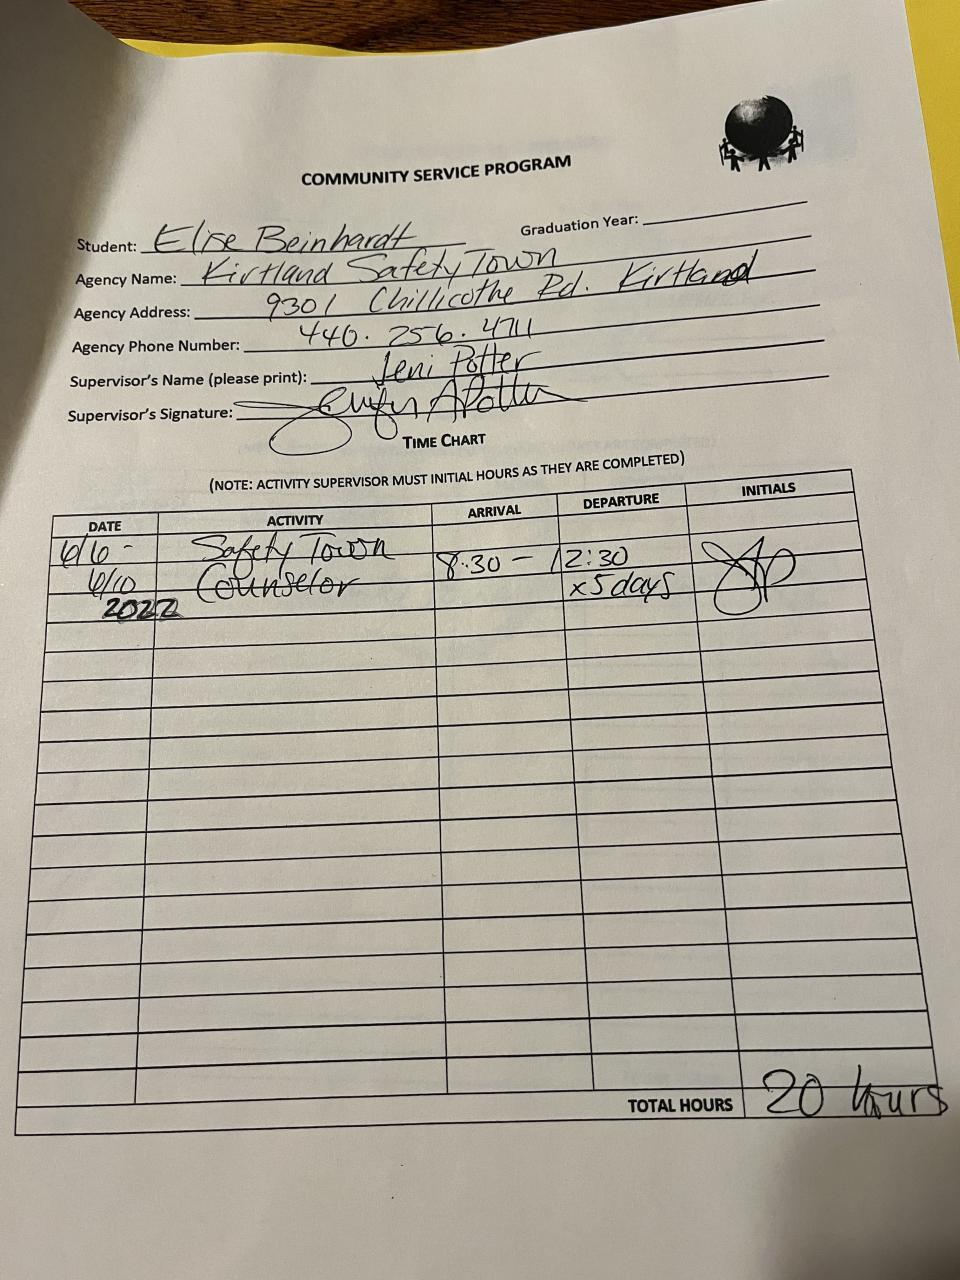 COMMUNITY SERVICE PROGRAM
Student: Elise Beinhardt Graduation Year:
Agency Name: Kirtland Safety Town
Agency Address: 9301 Chillicothe Rd. Kirtland
Agency Phone Number: 440.256.4711
Supervisor's Name (please print): Jeni Potter
Supervisor's Signature: Jennifer A Potter
TIME CHART
(NOTE: ACTIVITY SUPERVISOR MUST INITIAL HOURS AS THEY ARE COMPLETED)
DATE ACTIVITY ARRIVAL DEPARTURE INITIALS
6/6 - Safety Town 8:30 - 12:30 JAP
6/10 Counselor x5 days
2022
TOTAL HOURS 20 hours